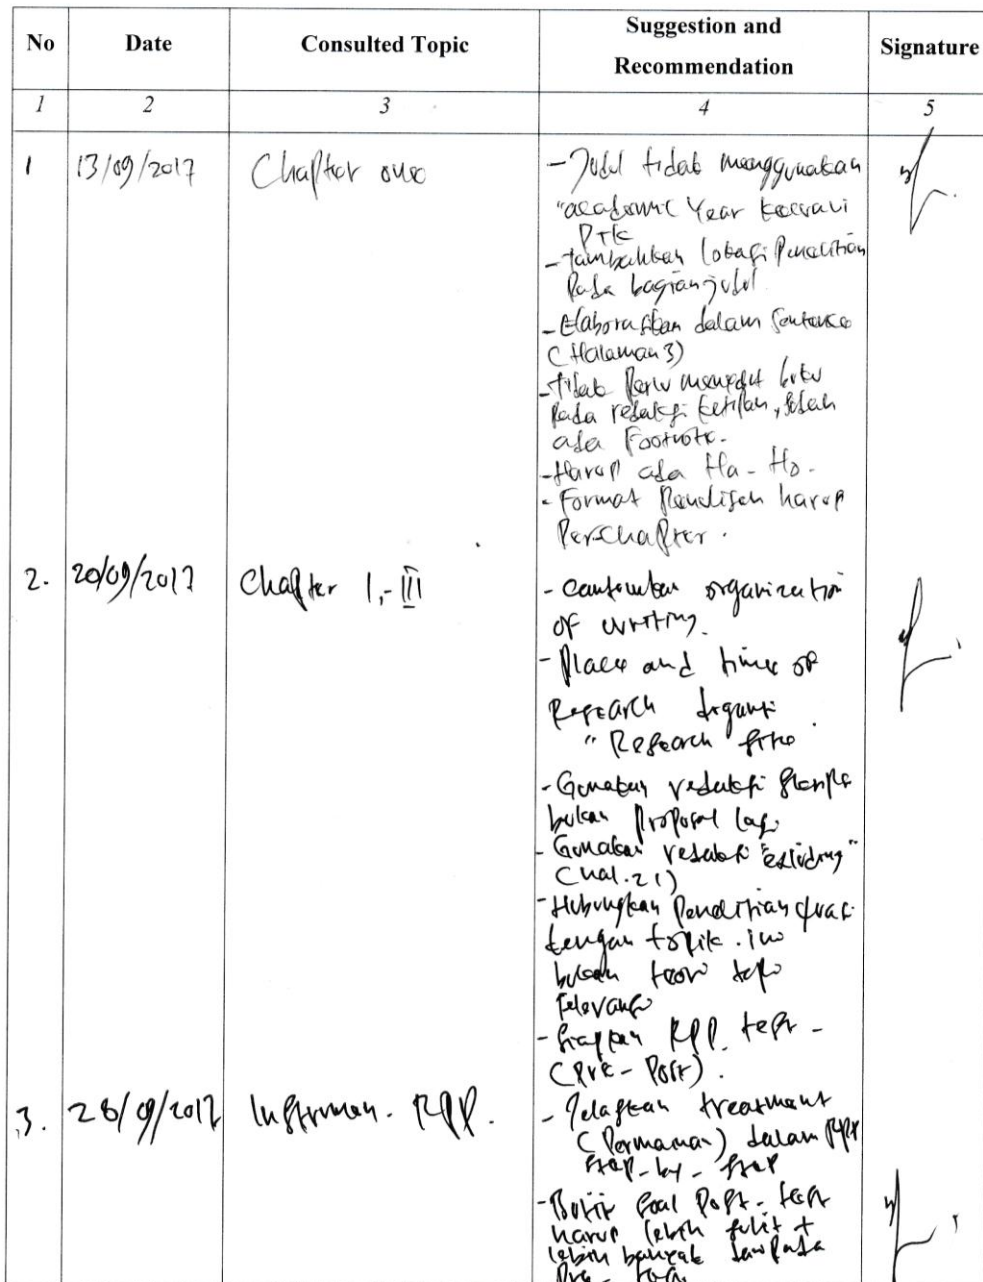 No Date Consulted Topic Suggestion and Recommendation Signature
1 2 3 4 5
1 13/09/2017 Chapter one
- Judul tidak menggunakan
"academic Year kecuali
PTK
- tambahkan lokasi Penelitian
Pada bagian judul
- Elaborasikan dalam Sentence
(Halaman 3)
- tidak Perlu menyebut buku
Pada redaksi kutipan, sudah
ada Footnote.
- Harus ada Ha - Ho.
- Format Penulisan harus
Perchapter.
2. 20/09/2017 Chapter I,- III
- cantumkan organization
of writing.
- Place and time of
Research diganti
"Research site
- Gunakan redaksi skripsi
bukan Proposal lagi
- Gunakan redaksi
(hal. 21)
- Hubungkan Penelitian
dengan topik. ini
bukan teori tapi
relevansi
- Siapkan RPP. test -
(Pre - Post).
3. 28/09/2017 Instrumen - RPP.
- Jelaskan treatment
(Permainan) dalam RPP
step - by - step
- Butir Soal Post - test
harus lebih sulit +
lebih banyak daripada
Pre -